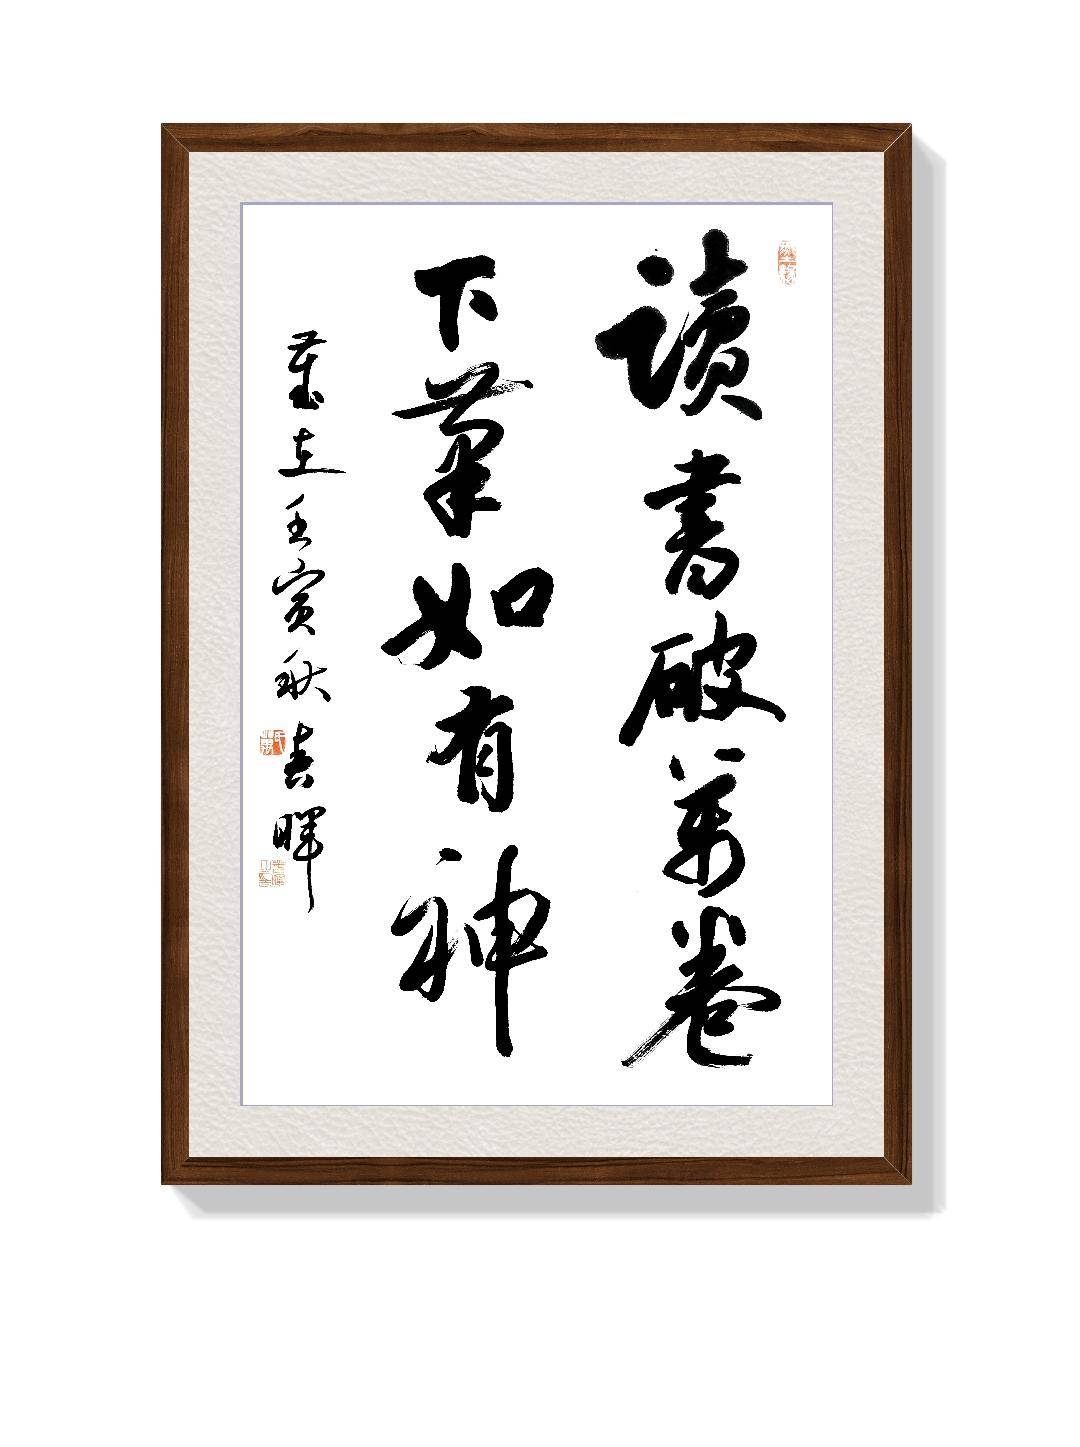 讀書破萬卷
下筆如有神
歲在壬寅秋春暉